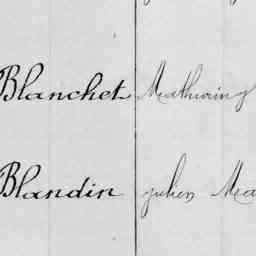 Blanchet Mathurin
Blandin julien Ma